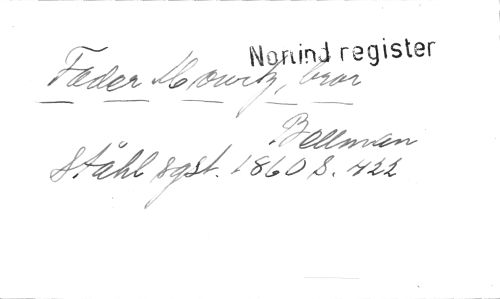 Norlind register
Fader Movitz, bror
Bellman
Ståhl sgst. 1860 S. 422